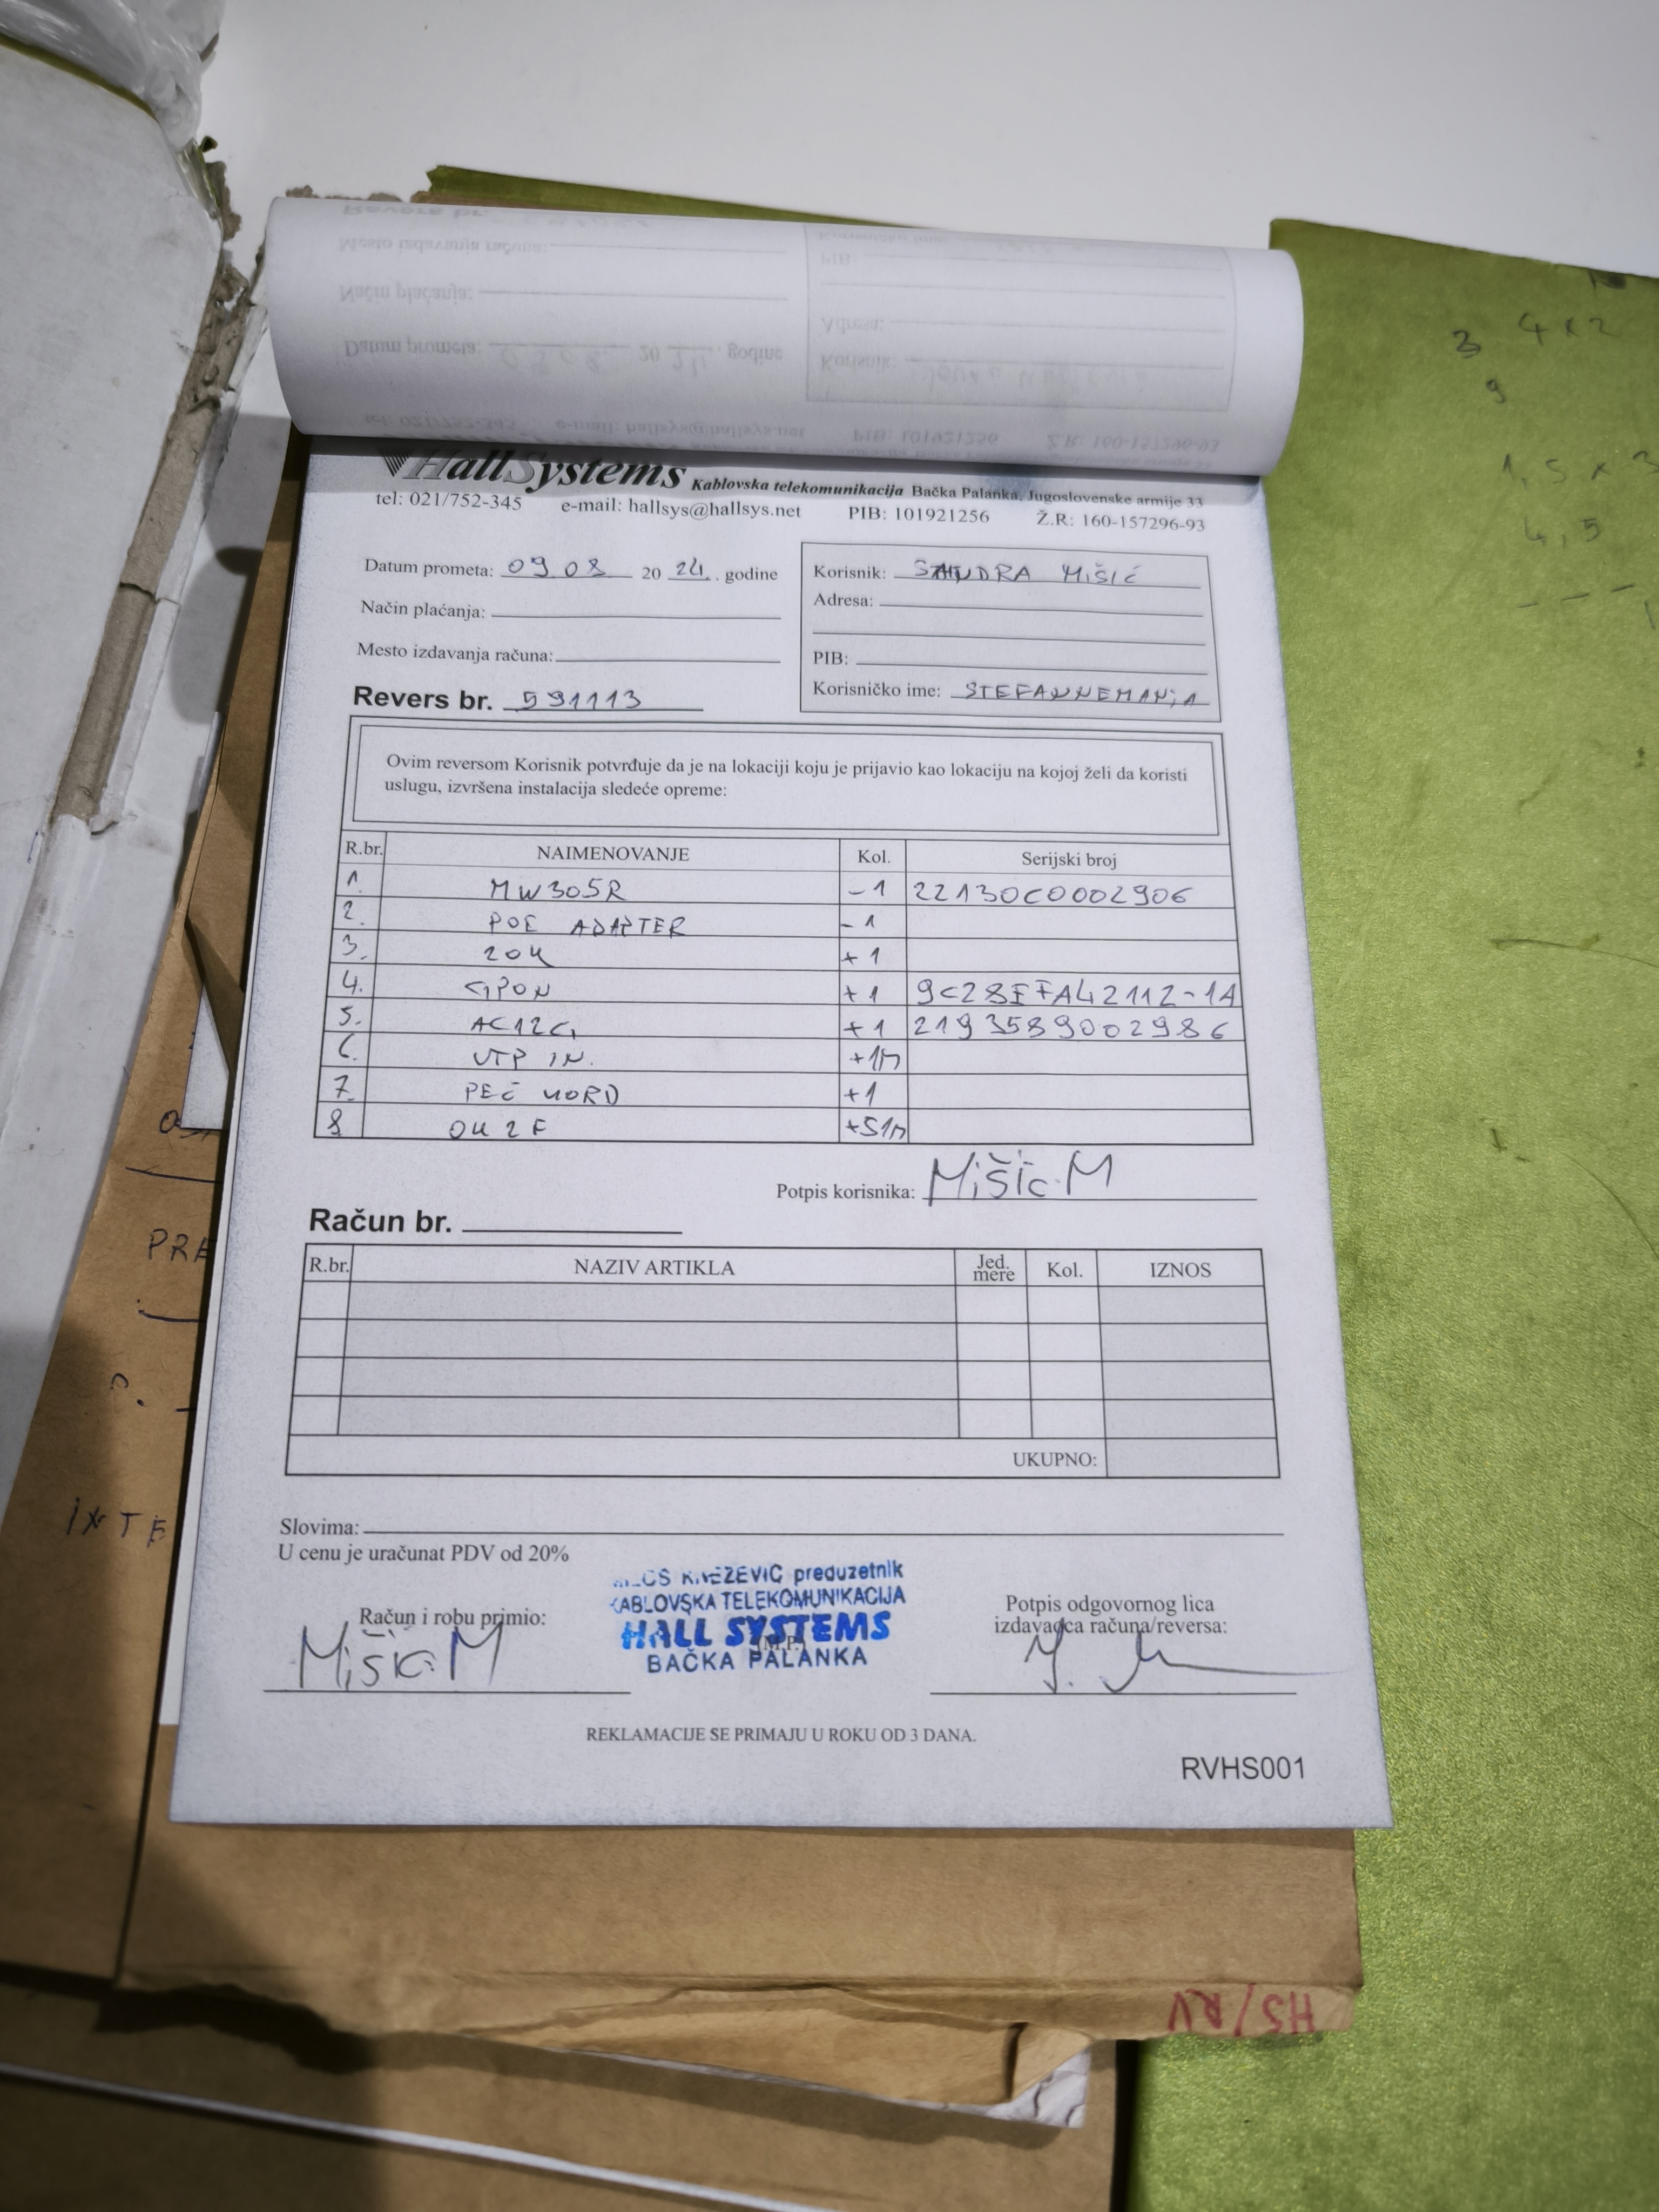 HallSystems Kablovska telekomunikacija Bačka Palanka, Jugoslovenske armije 33
tel: 021/752-345 e-mail: hallsys@hallsys.net PIB: 101921256 Ž.R: 160-157296-93
Datum prometa: 09 08 20 24. godine
Način plaćanja:
Mesto izdavanja računa:
Revers br. 591113
Korisnik: SANDRA MIŠIĆ
Adresa:
PIB:
Korisničko ime: STEFANNEMANJA
Ovim reversom Korisnik potvrđuje da je na lokaciji koju je prijavio kao lokaciju na kojoj želi da koristi
uslugu, izvršena instalacija sledeće opreme:
R.br. NAIMENOVANJE Kol. Serijski broj
1. MW305R -1 22130C0002906
2. POE ADAPTER -1
3. ZOK +1
4. GPON +1 9C28EFFA42112-1A
5. AC12G +1 2193589002986
6. UTP IN. +1m
7. PEČ KORD +1
8 OK 2F +51m
Potpis korisnika: Mišić M
Račun br.
R.br. NAZIV ARTIKLA Jed. mere Kol. IZNOS
UKUPNO:
Slovima:
U cenu je uračunat PDV od 20%
KNEZEVIĆ preduzetnik
KABLOVSKA TELEKOMUNIKACIJA
HALL SYSTEMS
(M.P.)
BAČKA PALANKA
Račun i robu primio:
Mišić M
Potpis odgovornog lica
izdavaoca računa/reversa:
REKLAMACIJE SE PRIMAJU U ROKU OD 3 DANA.
RVHS001
HS/RV
3 4x2
9
1,5 x 3
4,5
PRE